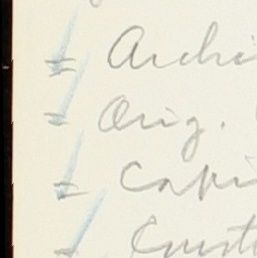 = Archi
= Orig.
= Capi